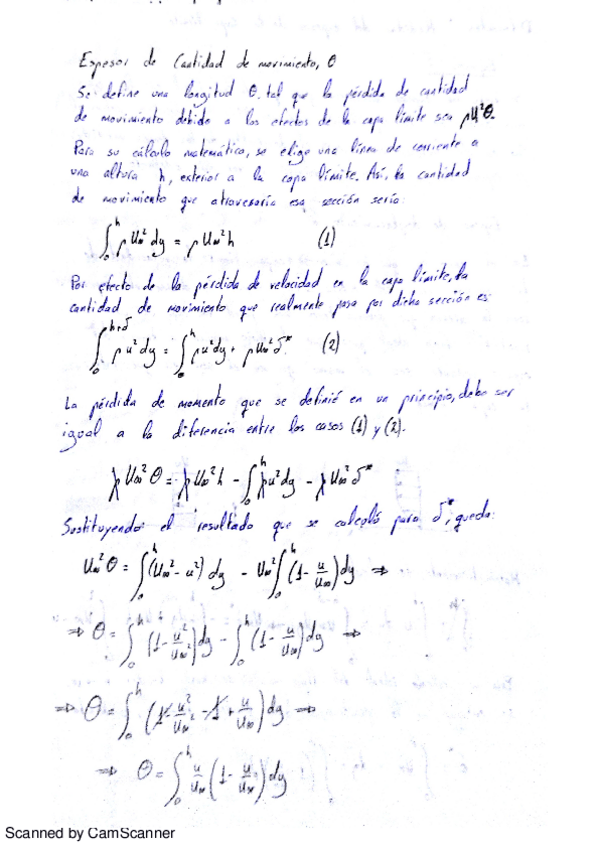 Espesor de Cantidad de movimiento, θ
Se define una longitud θ, tal que la pérdida de cantidad
de movimiento debido a los efectos de la capa límite sea ρU²θ.
Para su cálculo matemático, se elige una línea de corriente a
una altura h, exterior a la capa límite. Así, la cantidad
de movimiento que atravesaría esa sección sería:
∫₀ʰ ρ U∞² dy = ρ U∞² h (1)
Por efecto de la pérdida de velocidad en la capa límite, la
cantidad de movimiento que realmente pasa por dicha sección es:
∫₀ʰ⁺ᵟ ρu² dy = ∫₀ʰ ρu² dy + ρU∞² δ* (2)
La pérdida de momento que se definió en un principio, debe ser
igual a la diferencia entre los casos (1) y (2).
ρ U∞² θ = ρ U∞² h - ∫₀ʰ ρu² dy - ρ U∞² δ*
Sustituyendo el resultado que se calculó para δ*, queda:
U∞² θ = ∫₀ʰ (U∞² - u²) dy - U∞² ∫₀ʰ (1 - u/U∞) dy ⇒
⇒ θ = ∫₀ʰ (1 - u²/U∞²) dy - ∫₀ʰ (1 - u/U∞) dy ⇒
⇒ θ = ∫₀ʰ (1 - u²/U∞² - 1 + u/U∞) dy ⇒
⇒ θ = ∫₀ʰ u/U∞ (1 - u/U∞) dy
Scanned by CamScanner